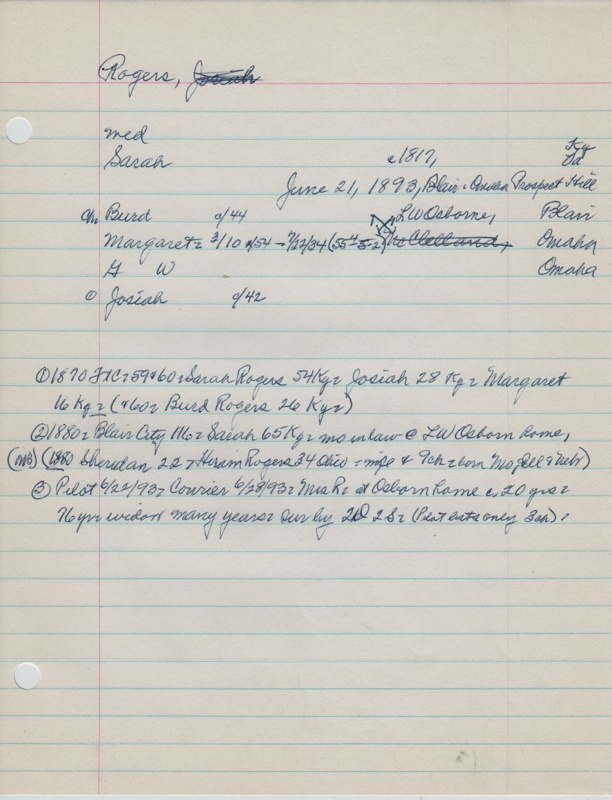 Rogers, Josiah
med
Ky
Sarah c1817, Va
June 21, 1893, Blair - Omaha Prospect Hill
ch Burd c/44 L W Osborne, Blair
Margaret = 3/10 c/54 - 7/22/34 McClelland, Omaha
G W Omaha
Josiah c/42
① 1870 FtC = 59 & 60 = Sarah Rogers 54 Ky = Josiah 28 Ky = Margaret
16 Ky = (& 60 = Burd Rogers 26 Ky =)
② 1880 = Blair City 116 = Sarah 65 Ky = mo inlaw @ L W Osborn home,
(NB) (1880 Sheridan 22 = Hiram Rogers 34 Ohio = wife & 9ch = born Mo, Ill & Nebr)
③ Pilot 6/22/93 = Courier 6/28/93 = Mrs R = at Osborn home c. 20 yrs =
76 yrs widow many years = sur by 2D 2S = (Pilot lists only 3ch) =